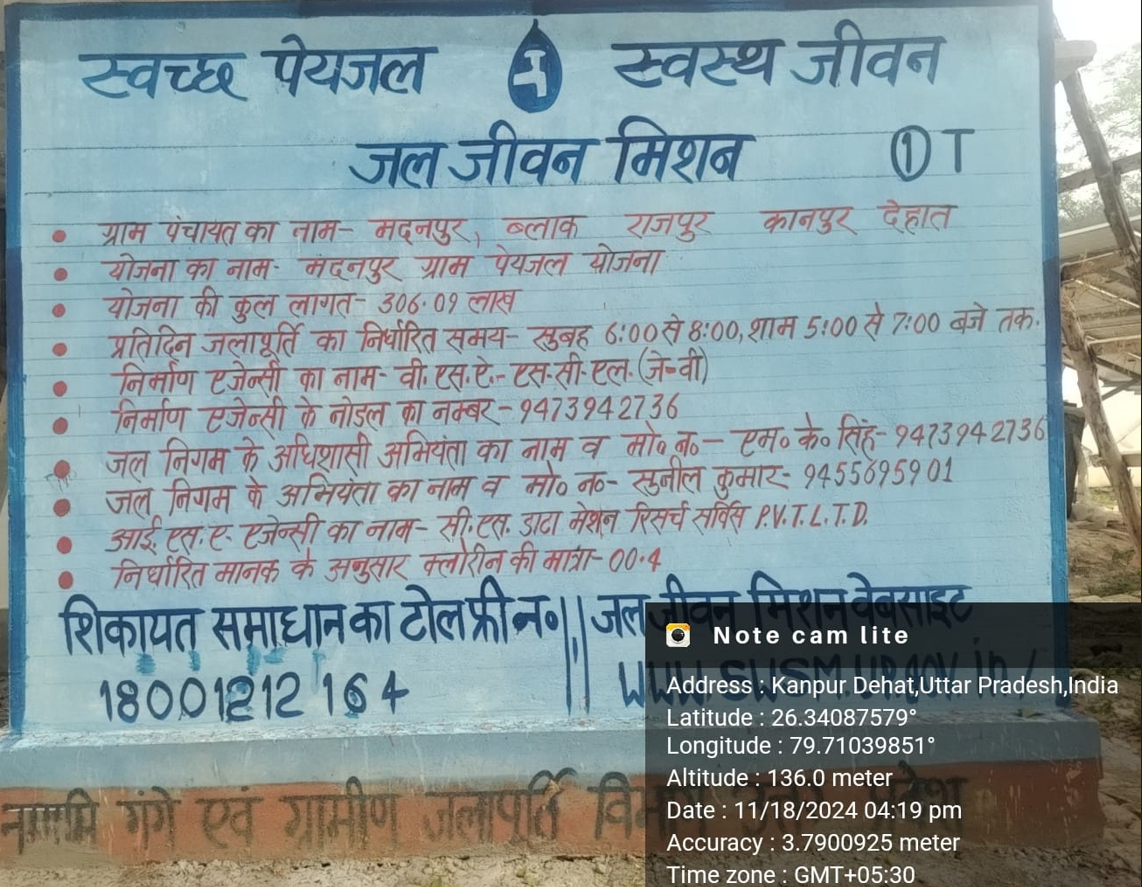 स्वच्छ पेयजल स्वस्थ जीवन
जल जीवन मिशन ① T
• ग्राम पंचायत का नाम- मदनपुर, ब्लाक राजपुर कानपुर देहात
• योजना का नाम- मदनपुर ग्राम पेयजल योजना
• योजना की कुल लागत- 306.09 लाख
• प्रतिदिन जलापूर्ति का निर्धारित समय- सुबह 6:00 से 8:00, शाम 5:00 से 7:00 बजे तक.
• निर्माण एजेन्सी का नाम- वी. एस.ए.- एस.सी.एल. (जे=वी)
• निर्माण एजेन्सी के नोडल का नम्बर - 9473942736
• जल निगम के अधिशासी अभियंता का नाम व मो० न० - एम० के० सिंह- 9473942736
• जल निगम के अभियंता का नाम व मो० न०- सुनील कुमार- 9455695901
• आई. एस.ए- एजेन्सी का नाम- सी.एस. डाटा मेशन रिसर्च सर्विस P.V.T.L.T.D.
• निर्धारित मानक के अनुसार क्लोरीन की मात्रा- 00.4
शिकायत समाधान का टोल फ्री न० || जल जीवन मिशन वेबसाइट
18001212164 || www.swsm.up.gov.in/
नमामि गंगे एवं ग्रामीण जलापूर्ति
Note cam lite
Address : Kanpur Dehat,Uttar Pradesh,India
Latitude : 26.34087579°
Longitude : 79.71039851°
Altitude : 136.0 meter
Date : 11/18/2024 04:19 pm
Accuracy : 3.7900925 meter
Time zone : GMT+05:30